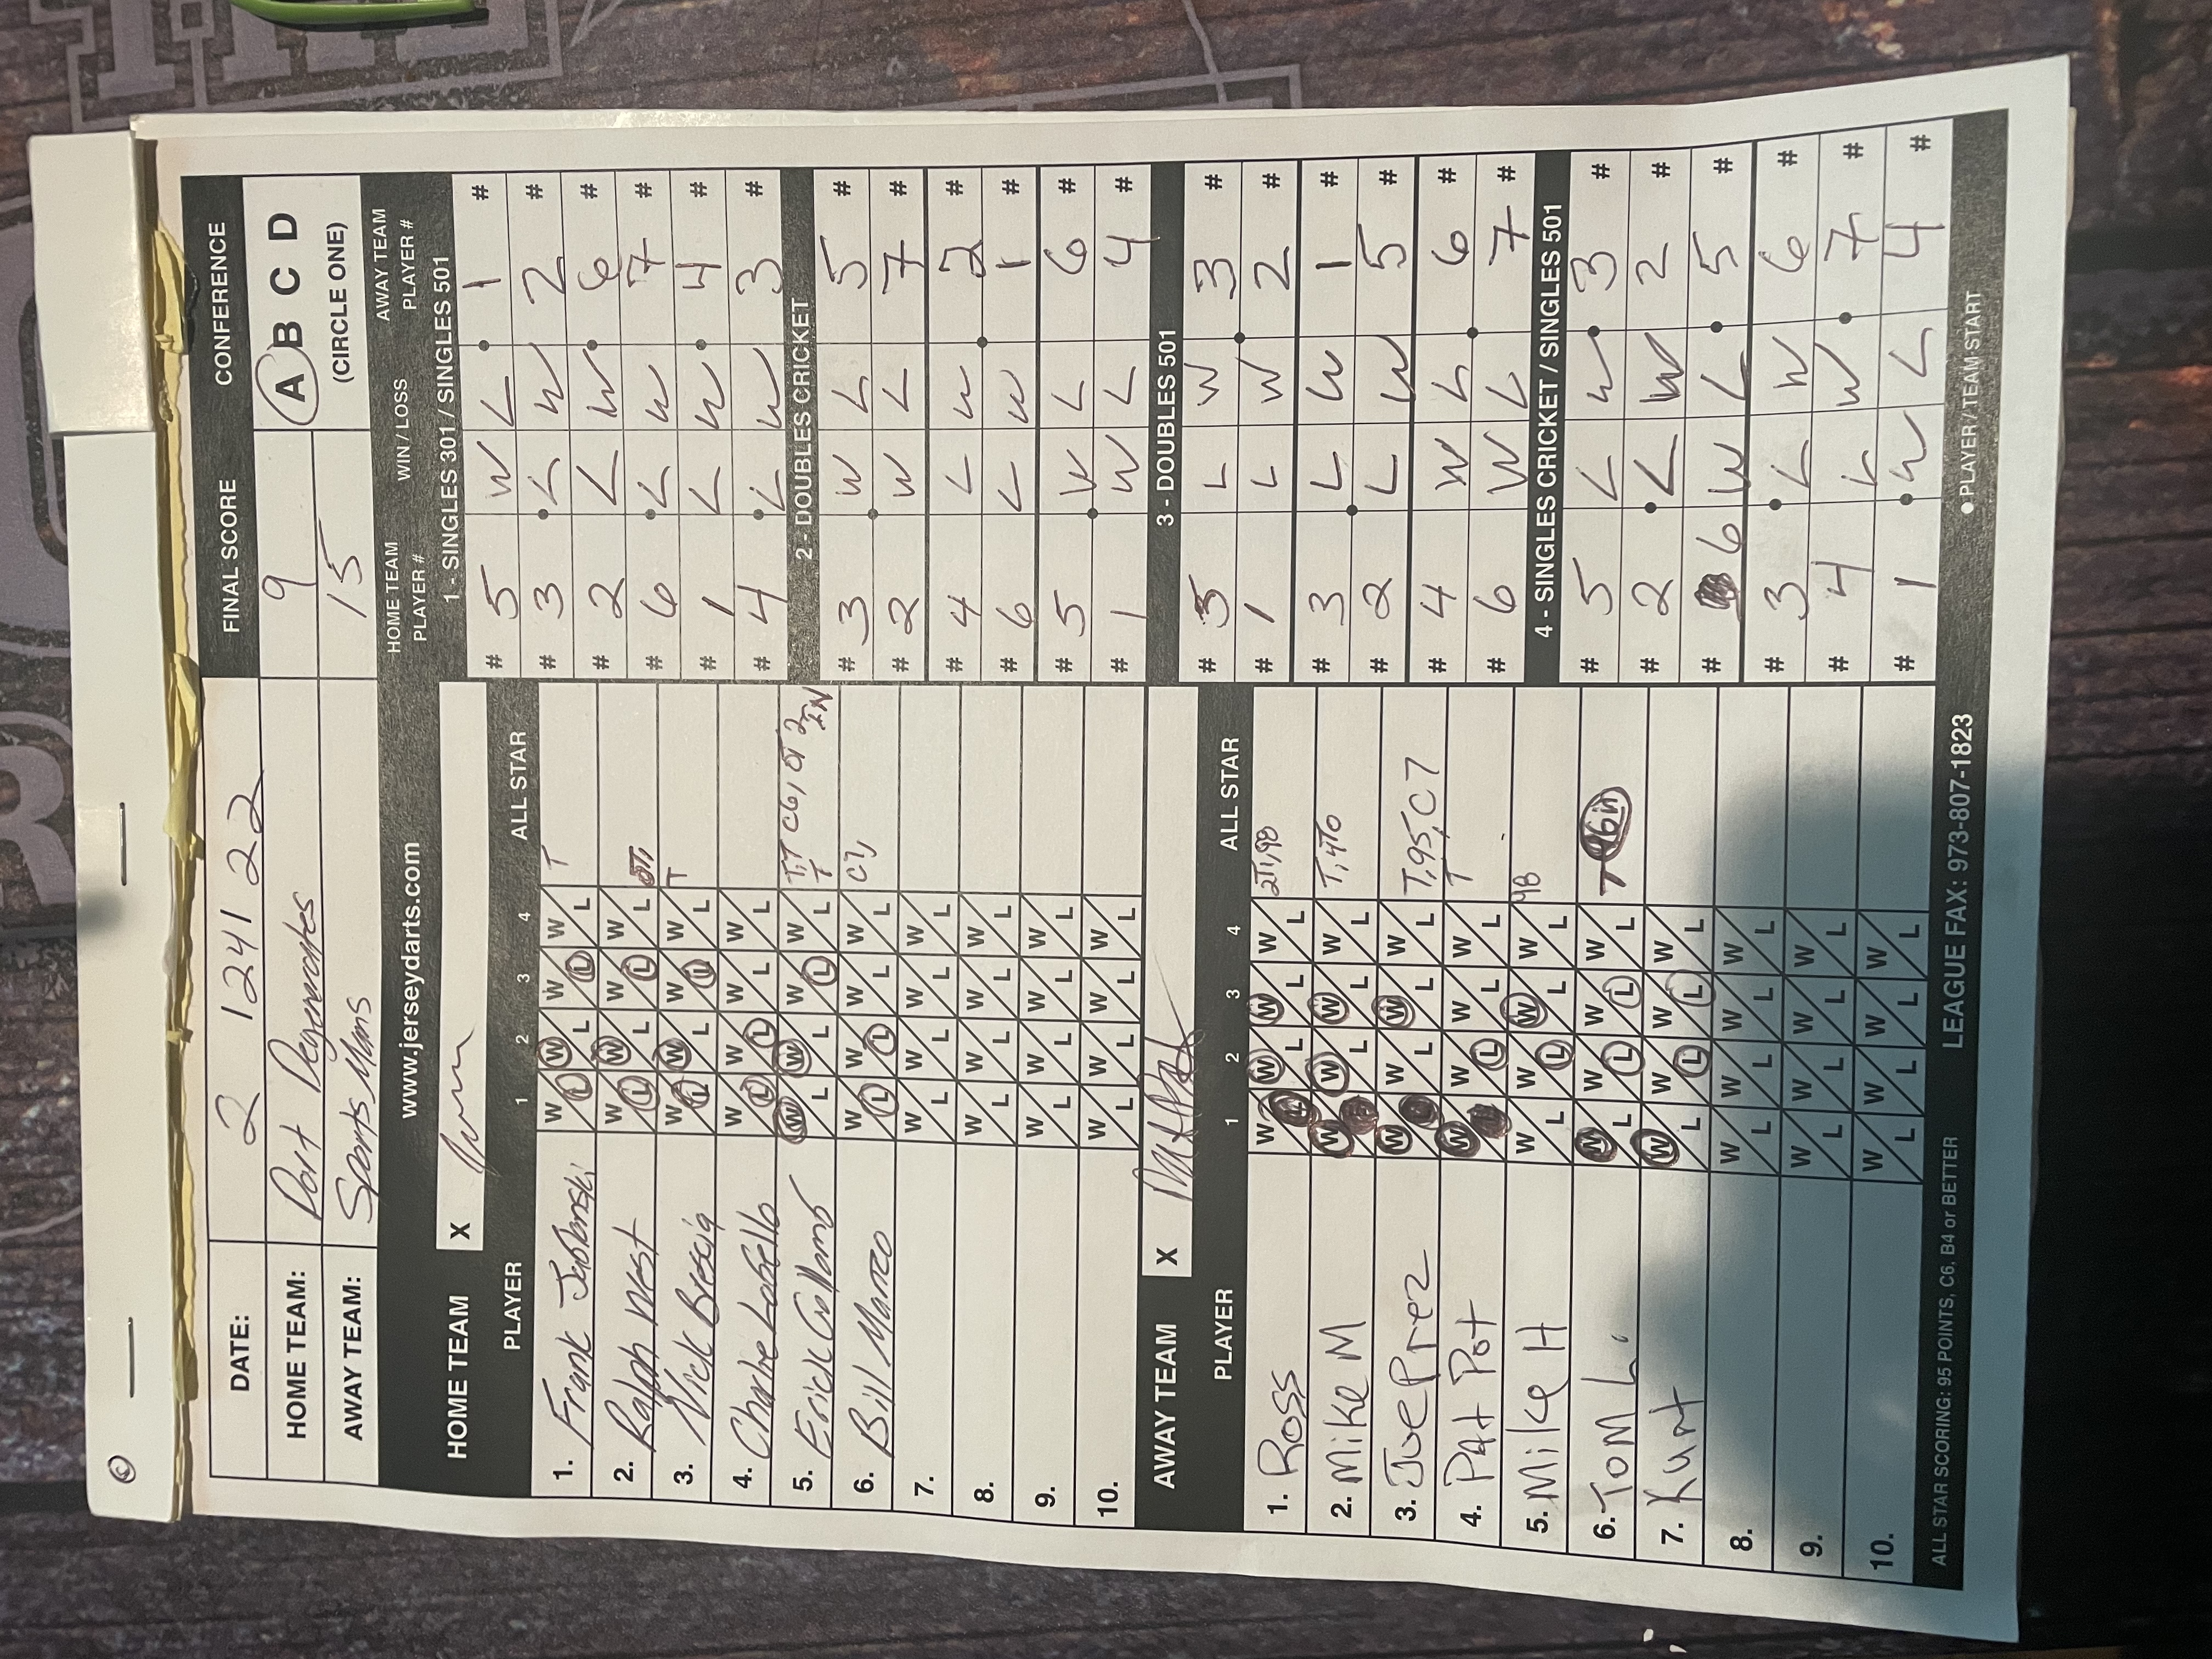 DATE: 2 1241 22 FINAL SCORE CONFERENCE
HOME TEAM: Port Degenerates 9 A B C D
AWAY TEAM: Sports Mans 15 (CIRCLE ONE)
www.jerseydarts.com
HOME TEAM X
PLAYER 1 2 3 4 ALL STAR
1. Frank Jablonski W L W L W L W L T
2. Ralph West W L W L W L W L
3. Nick Brescia W L W L W L W L T
4. Charlie Lobello W L W L W L W L
5. Erick Cullams W L W L W L W L T,T C6, 2T 2 IN T
6. Bill Marco W L W L W L W L C7,
7. W L W L W L W L
8. W L W L W L W L
9. W L W L W L W L
10. W L W L W L W L
AWAY TEAM X
PLAYER 1 2 3 4 ALL STAR
1. Ross W L W L W L W L 2T, 98
2. Mike M W L W L W L W L T, 4T0
3. Joe Prez W L W L W L W L T, 95, C7
4. Pat Pot W L W L W L W L T
5. Mike H W L W L W L W L 98
6. Tom L. W L W L W L W L
7. Kurt W L W L W L W L
8. W L W L W L W L
9. W L W L W L W L
10. W L W L W L W L
ALL STAR SCORING: 95 POINTS, C6, B4 or BETTER LEAGUE FAX: 973-807-1823
HOME TEAM PLAYER # WIN / LOSS AWAY TEAM PLAYER #
1 - SINGLES 301 / SINGLES 501
# 5 W L 1 #
# 3 L W 2 #
# 2 L W 6 #
# 6 L W 7 #
# 1 L W 4 #
# 4 L W 3 #
2 - DOUBLES CRICKET
# 3 W L 5 #
# 2 W L 7 #
# 4 L W 2 #
# 6 L W 1 #
# 5 W L 6 #
# 1 W L 4 #
3 - DOUBLES 501
# 5 L W 3 #
# 1 L W 2 #
# 3 L W 1 #
# 2 L W 5 #
# 4 W L 6 #
# 6 W L 7 #
4 - SINGLES CRICKET / SINGLES 501
# 5 L W 3 #
# 2 L W 2 #
# 6 W L 5 #
# 3 L W 6 #
# 4 L W 7 #
# 1 W L 4 #
● PLAYER / TEAM START